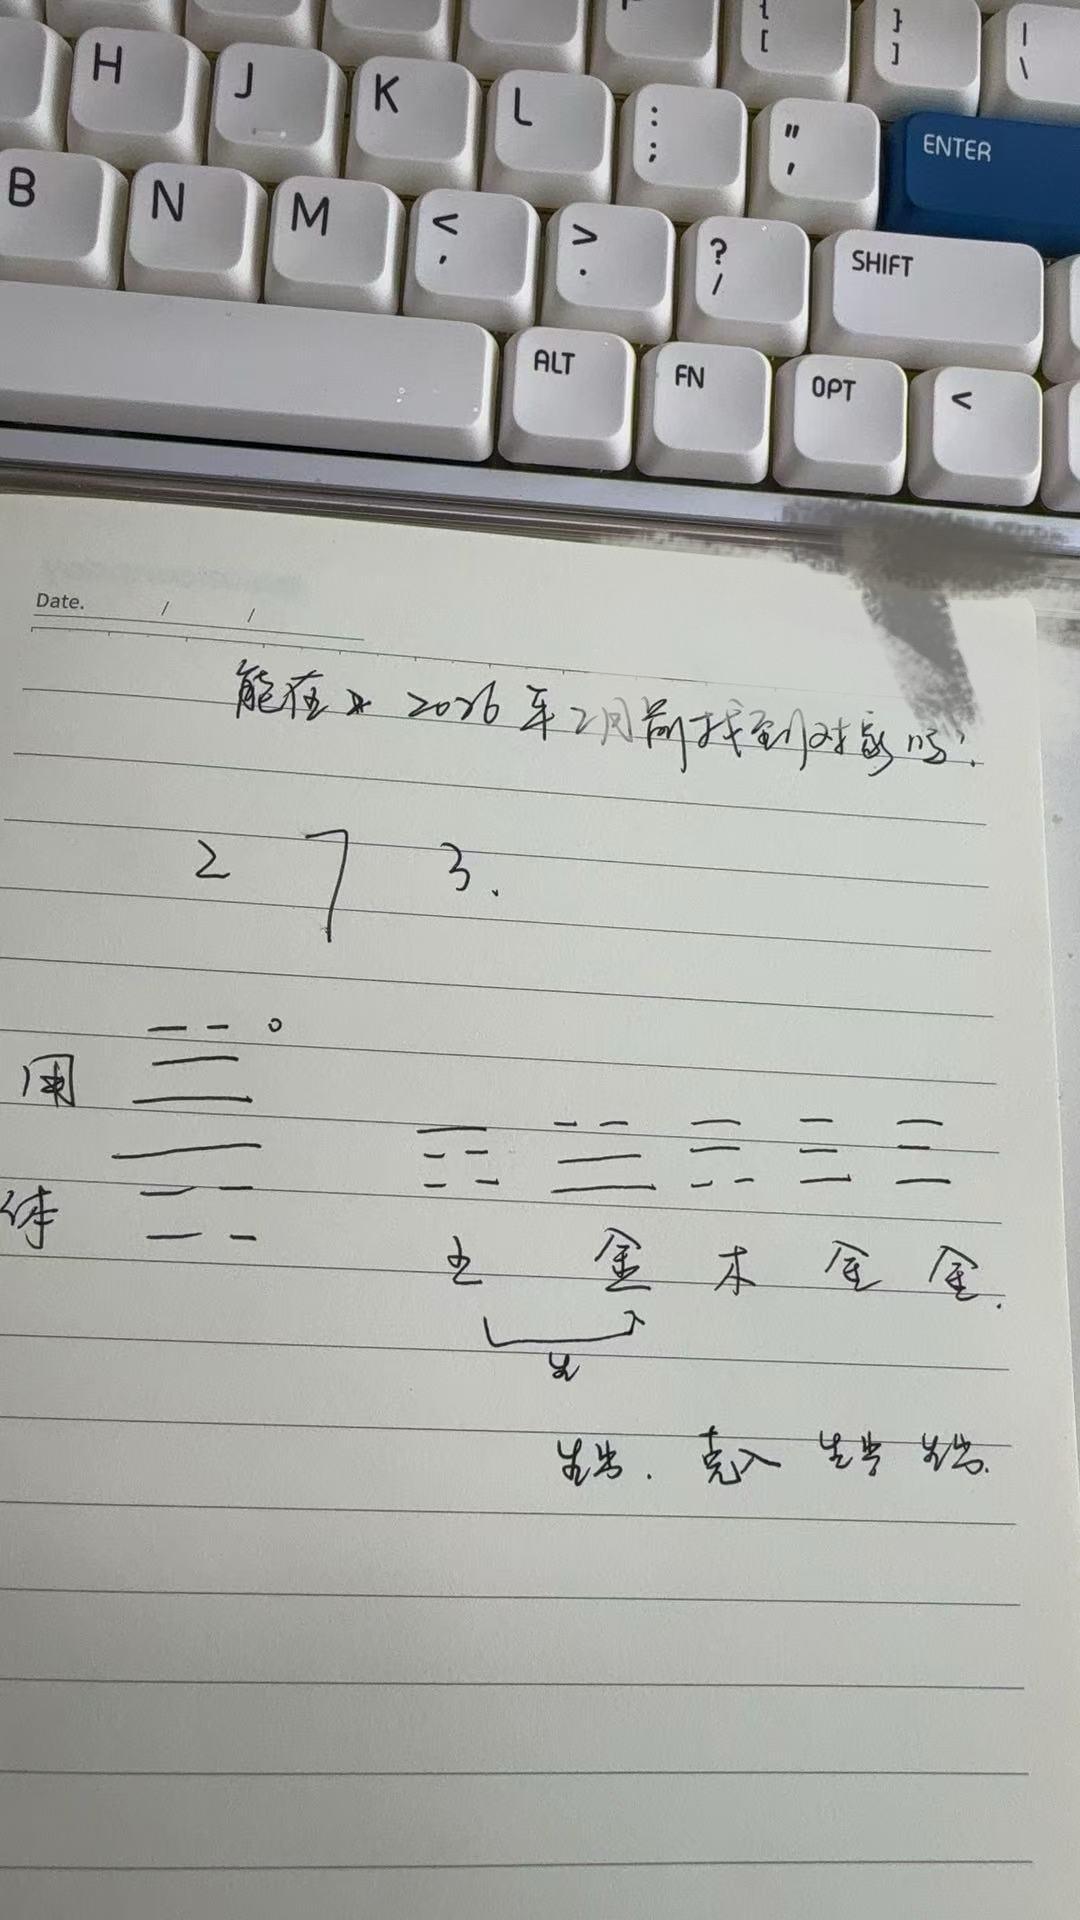 { [
} ]
| \
H J K L : ; " ' ENTER
B N M < , > . ? / SHIFT
ALT FN OPT <
Date. / /
能在 2026年2月前找到对象吗.
2 7 3.
用
体
土 金 木 金 金.
生
生出. 克入 生出 生出.